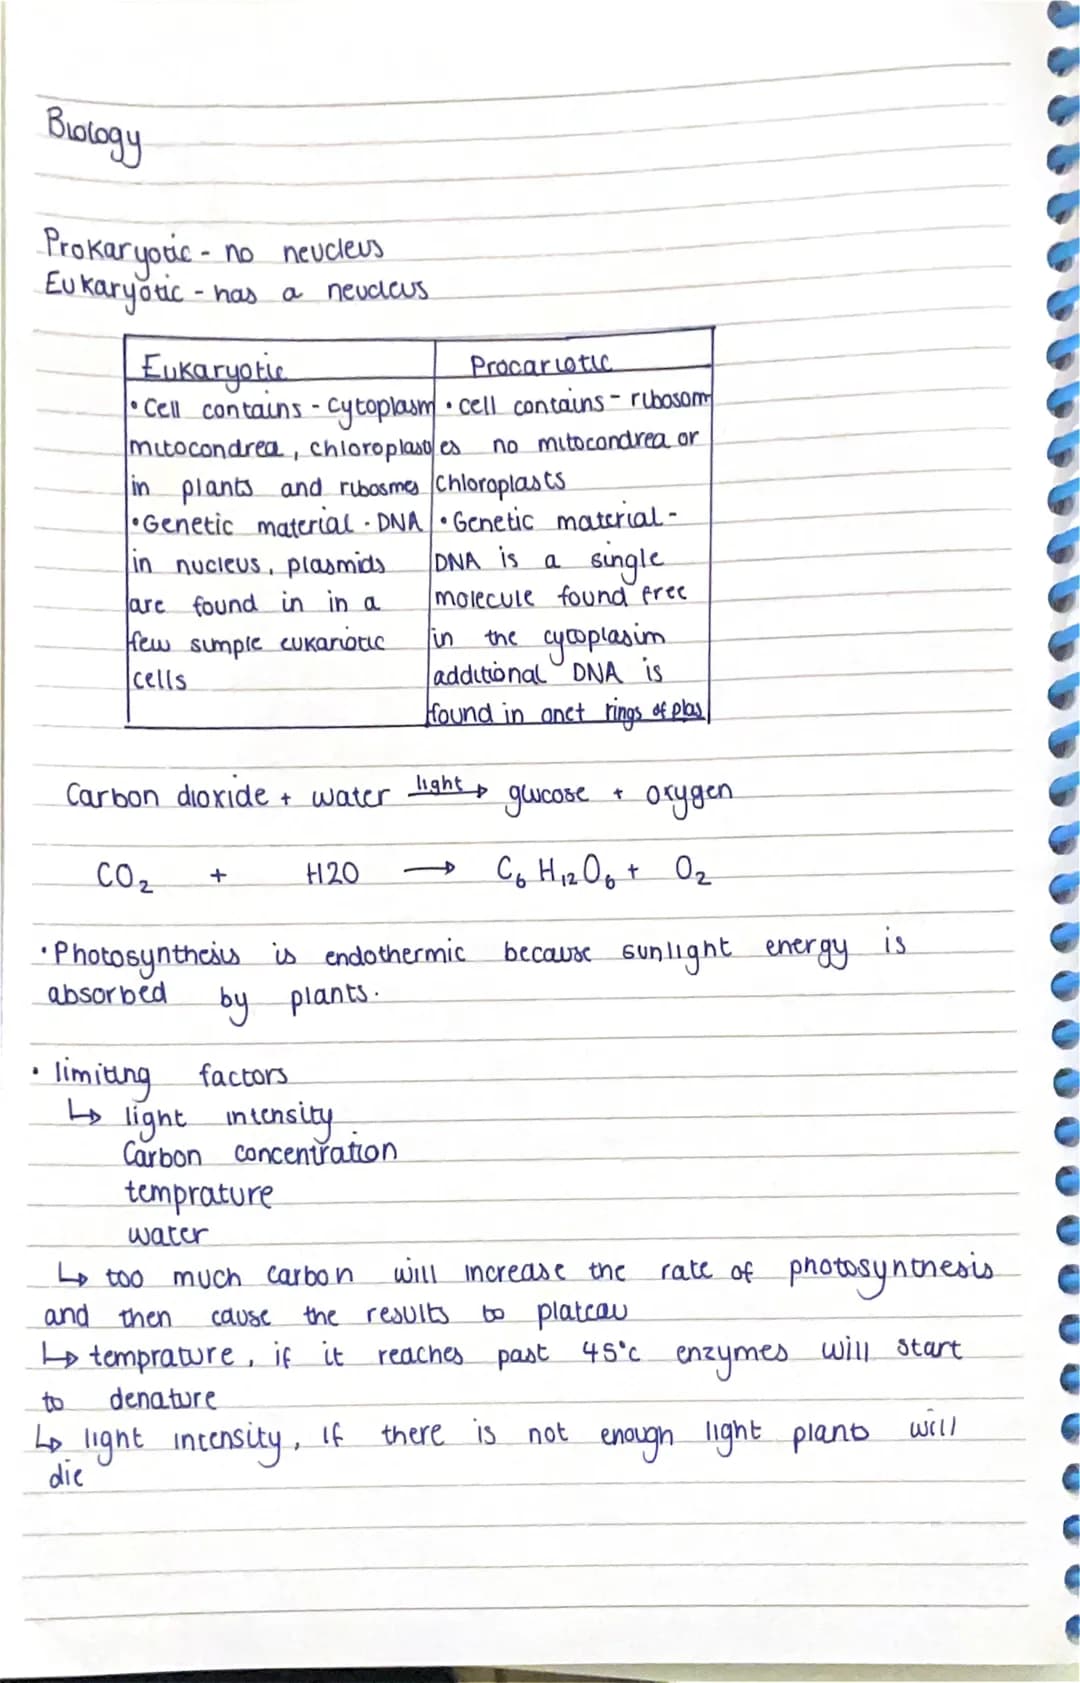 Biology
Prokaryotic - no neucleus
Eukaryotic - has a neucleus
Eukaryotic
• Cell contains - Cytoplasm
mitocondrea, chloroplasts
in plants and ribosmes
• Genetic material - DNA
in nucleus, plasmids
are found in in a
few simple eukariotic
cells
Procariotic
• cell contains - ribosom
es no mitocondrea or
Chloroplasts
• Genetic material -
DNA is a single
molecule found free
in the cytoplasim
additional DNA is
found in rings of plas
Carbon dioxide + water light → glucose + oxygen
CO2 + H2O → C6H12O6 + O2
• Photosynthesis is endothermic because sunlight energy is
absorbed by plants.
• limiting factors
↳ light intensity
Carbon concentration
temprature
water
↳ too much carbon will increase the rate of photosynthesis
and then cause the results to plateau
↳ temprature, if it reaches past 45°c enzymes will start
to denature
↳ light intensity, if there is not enough light plants will
die